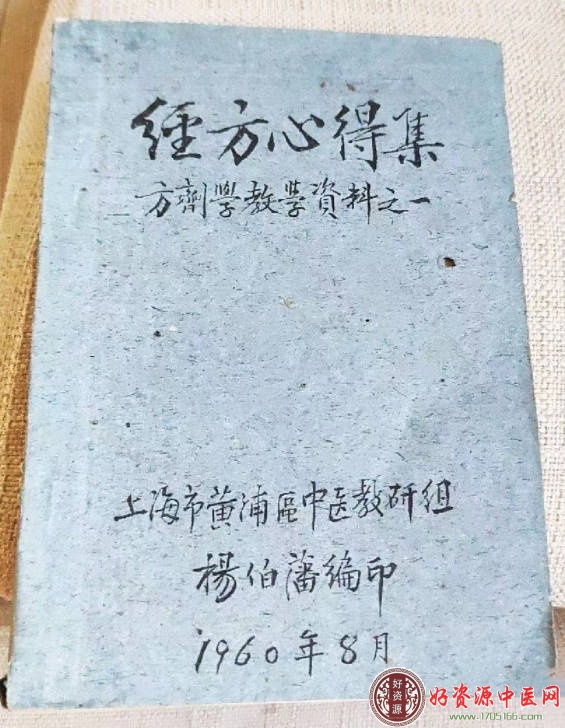 經方心得集
方劑學教學資料之一
上海市黄浦區中医教研组
楊伯藩編印
1960年8月
好资源
好资源中医网
www.1705166.com